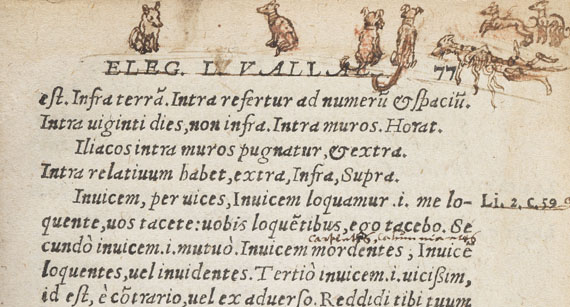 ELEG. L. VALLAE 77
est. Infra terrã. Intra refertur ad numerũ & spaciũ.
Intra uiginti dies, non infra. Intra muros. Horat.
Iliacos intra muros pugnatur, & extra.
Intra relatiuum habet, extra, Infra, Supra.
Inuicem, per uices, Inuicem loquamur .i. me lo-
Li. 2. C. 59
quente, uos tacete: uobis loquẽtibus, ego tacebo. Se
cundò inuicem .i. mutuò. Inuicem mordentes, Inuicẽ
loquentes, uel inuidentes. Tertiò inuicem .i. uicißim,
id est, è cõtrario, uel ex aduerso. Reddidi tibi tuum